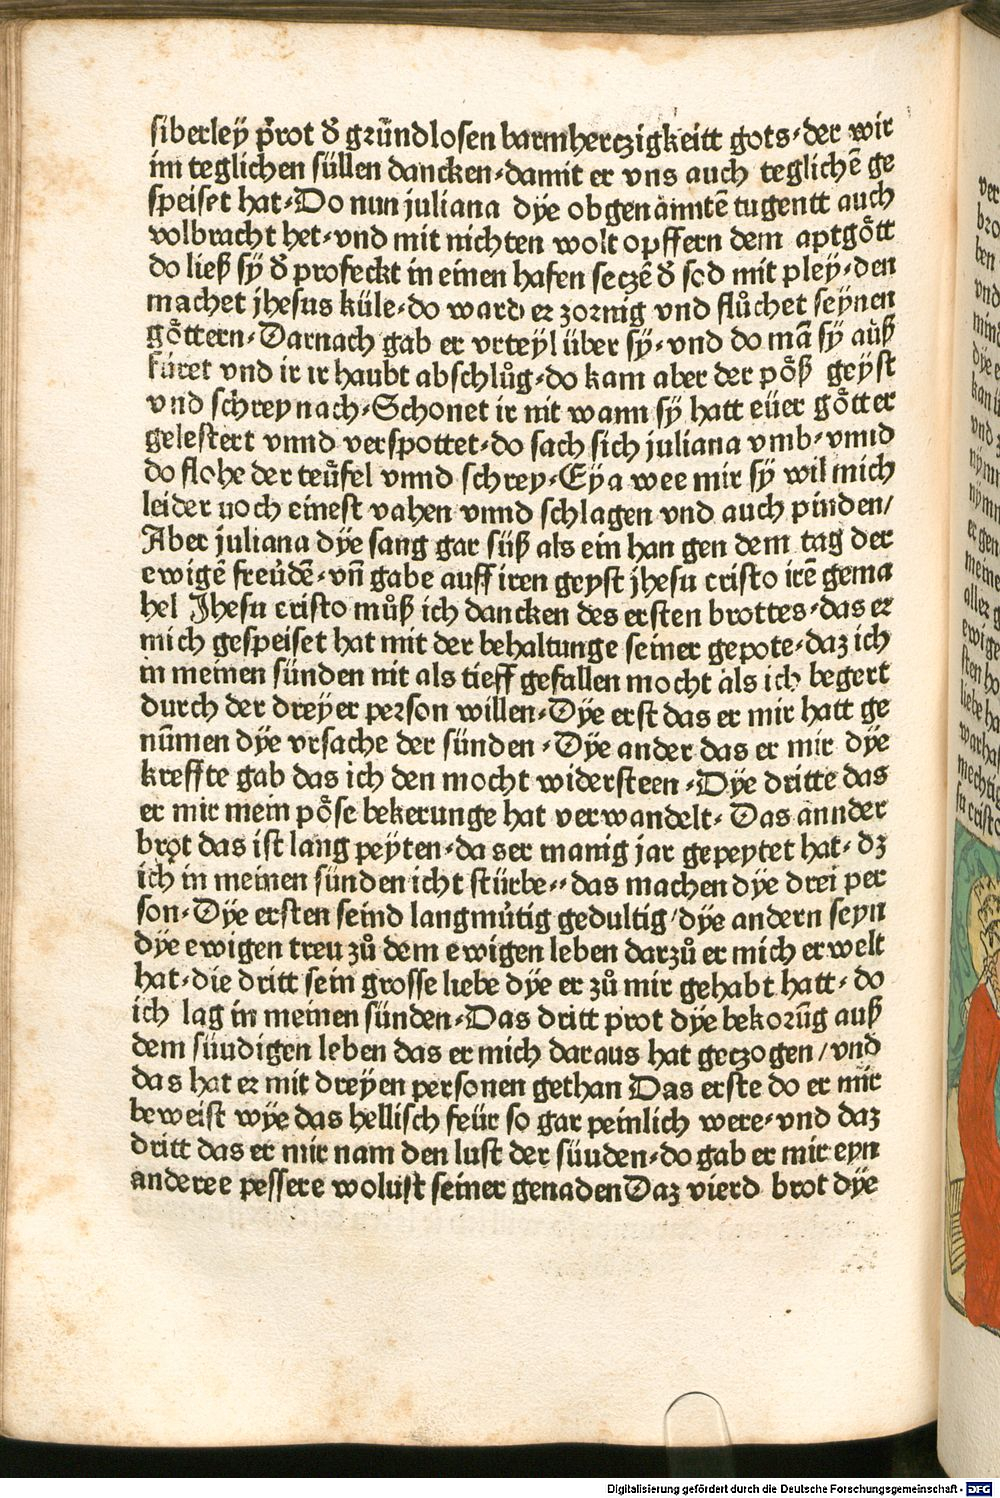 siberley p̄rot đ grūndlosen barmhertzigkeitt gots·der wir
im teglichen süllen dancken·damit er vns auch teglichē ge
speiset hat·Do nun juliana dÿe obgenāmtē tugentt auch
volbracht het·vnd mit nichten wolt opffern dem aptgött
do ließ sÿ đ profeckt in einen hafen setzē đ sod mit pley·den
machet jhesus küle·do ward er zornig vnd flůchet seÿnen
göttern·Darnach gab er vrteyl über sÿ·vnd do mā sÿ auß
füret vnd ir ir haubt abschlůg·do kam aber der pöß geyst
vnd schrey nach·Schonet ir nit wann sÿ hatt eüer götter
gelestert vnnd verspottet·do sach sich juliana vmb·vnnd
do flohe der teufel vnnd schrey·Eya wee mir sÿ wil mich
leider noch einest vahen vnnd schlagen vnd auch pinden/
Aber juliana dÿe sang gar süß als ein han gen dem tag der
ewigē freudē·vn̄ gabe auff iren geyst jhesu cristo irē gema
hel Jhesu cristo můß ich dancken des ersten brottes·das er
mich gespeiset hat mit der behaltunge seiner gepote·daz ich
in meinen sünden nit als tieff gefallen mocht als ich begert
durch der dreÿer person willen·Dÿe erst das er mir hatt ge
nūmen dÿe vrsache der sünden·Dÿe ander das er mir dÿe
kreffte gab das ich den mocht widersteen·Dÿe dritte das
er mir mein pöse bekerunge hat verwandelt·Das annder
brot das ist lang peÿten·da ser manig jar gepeytet hat·dz
ich in meinen sünden icht stürbe··das machen dÿe drei per
son·Dÿe ersten seind langmütig gedultig/dÿe andern seyn
dÿe ewigen treu zů dem ewigen leben darzů er mich erwelt
hat·die dritt sein grosse liebe dÿe er zů mir gehabt hatt·do
ich lag in meinen sünden·Das dritt prot dÿe bekorūg auß
dem süudigen leben das er mich daraus hat getzogen/vnd
das hat er mit dreÿen personen gethan Das erste do er mir
beweist wÿe das hellisch feür so gar peinlich were·vnd daz
dritt das er mir nam den lust der süuden·do gab er mir eyn
anderee pessere wolust seiner genaden Daz vierd brot dÿe
Digitalisierung gefördert durch die Deutsche Forschungsgemeinschaft - DFG